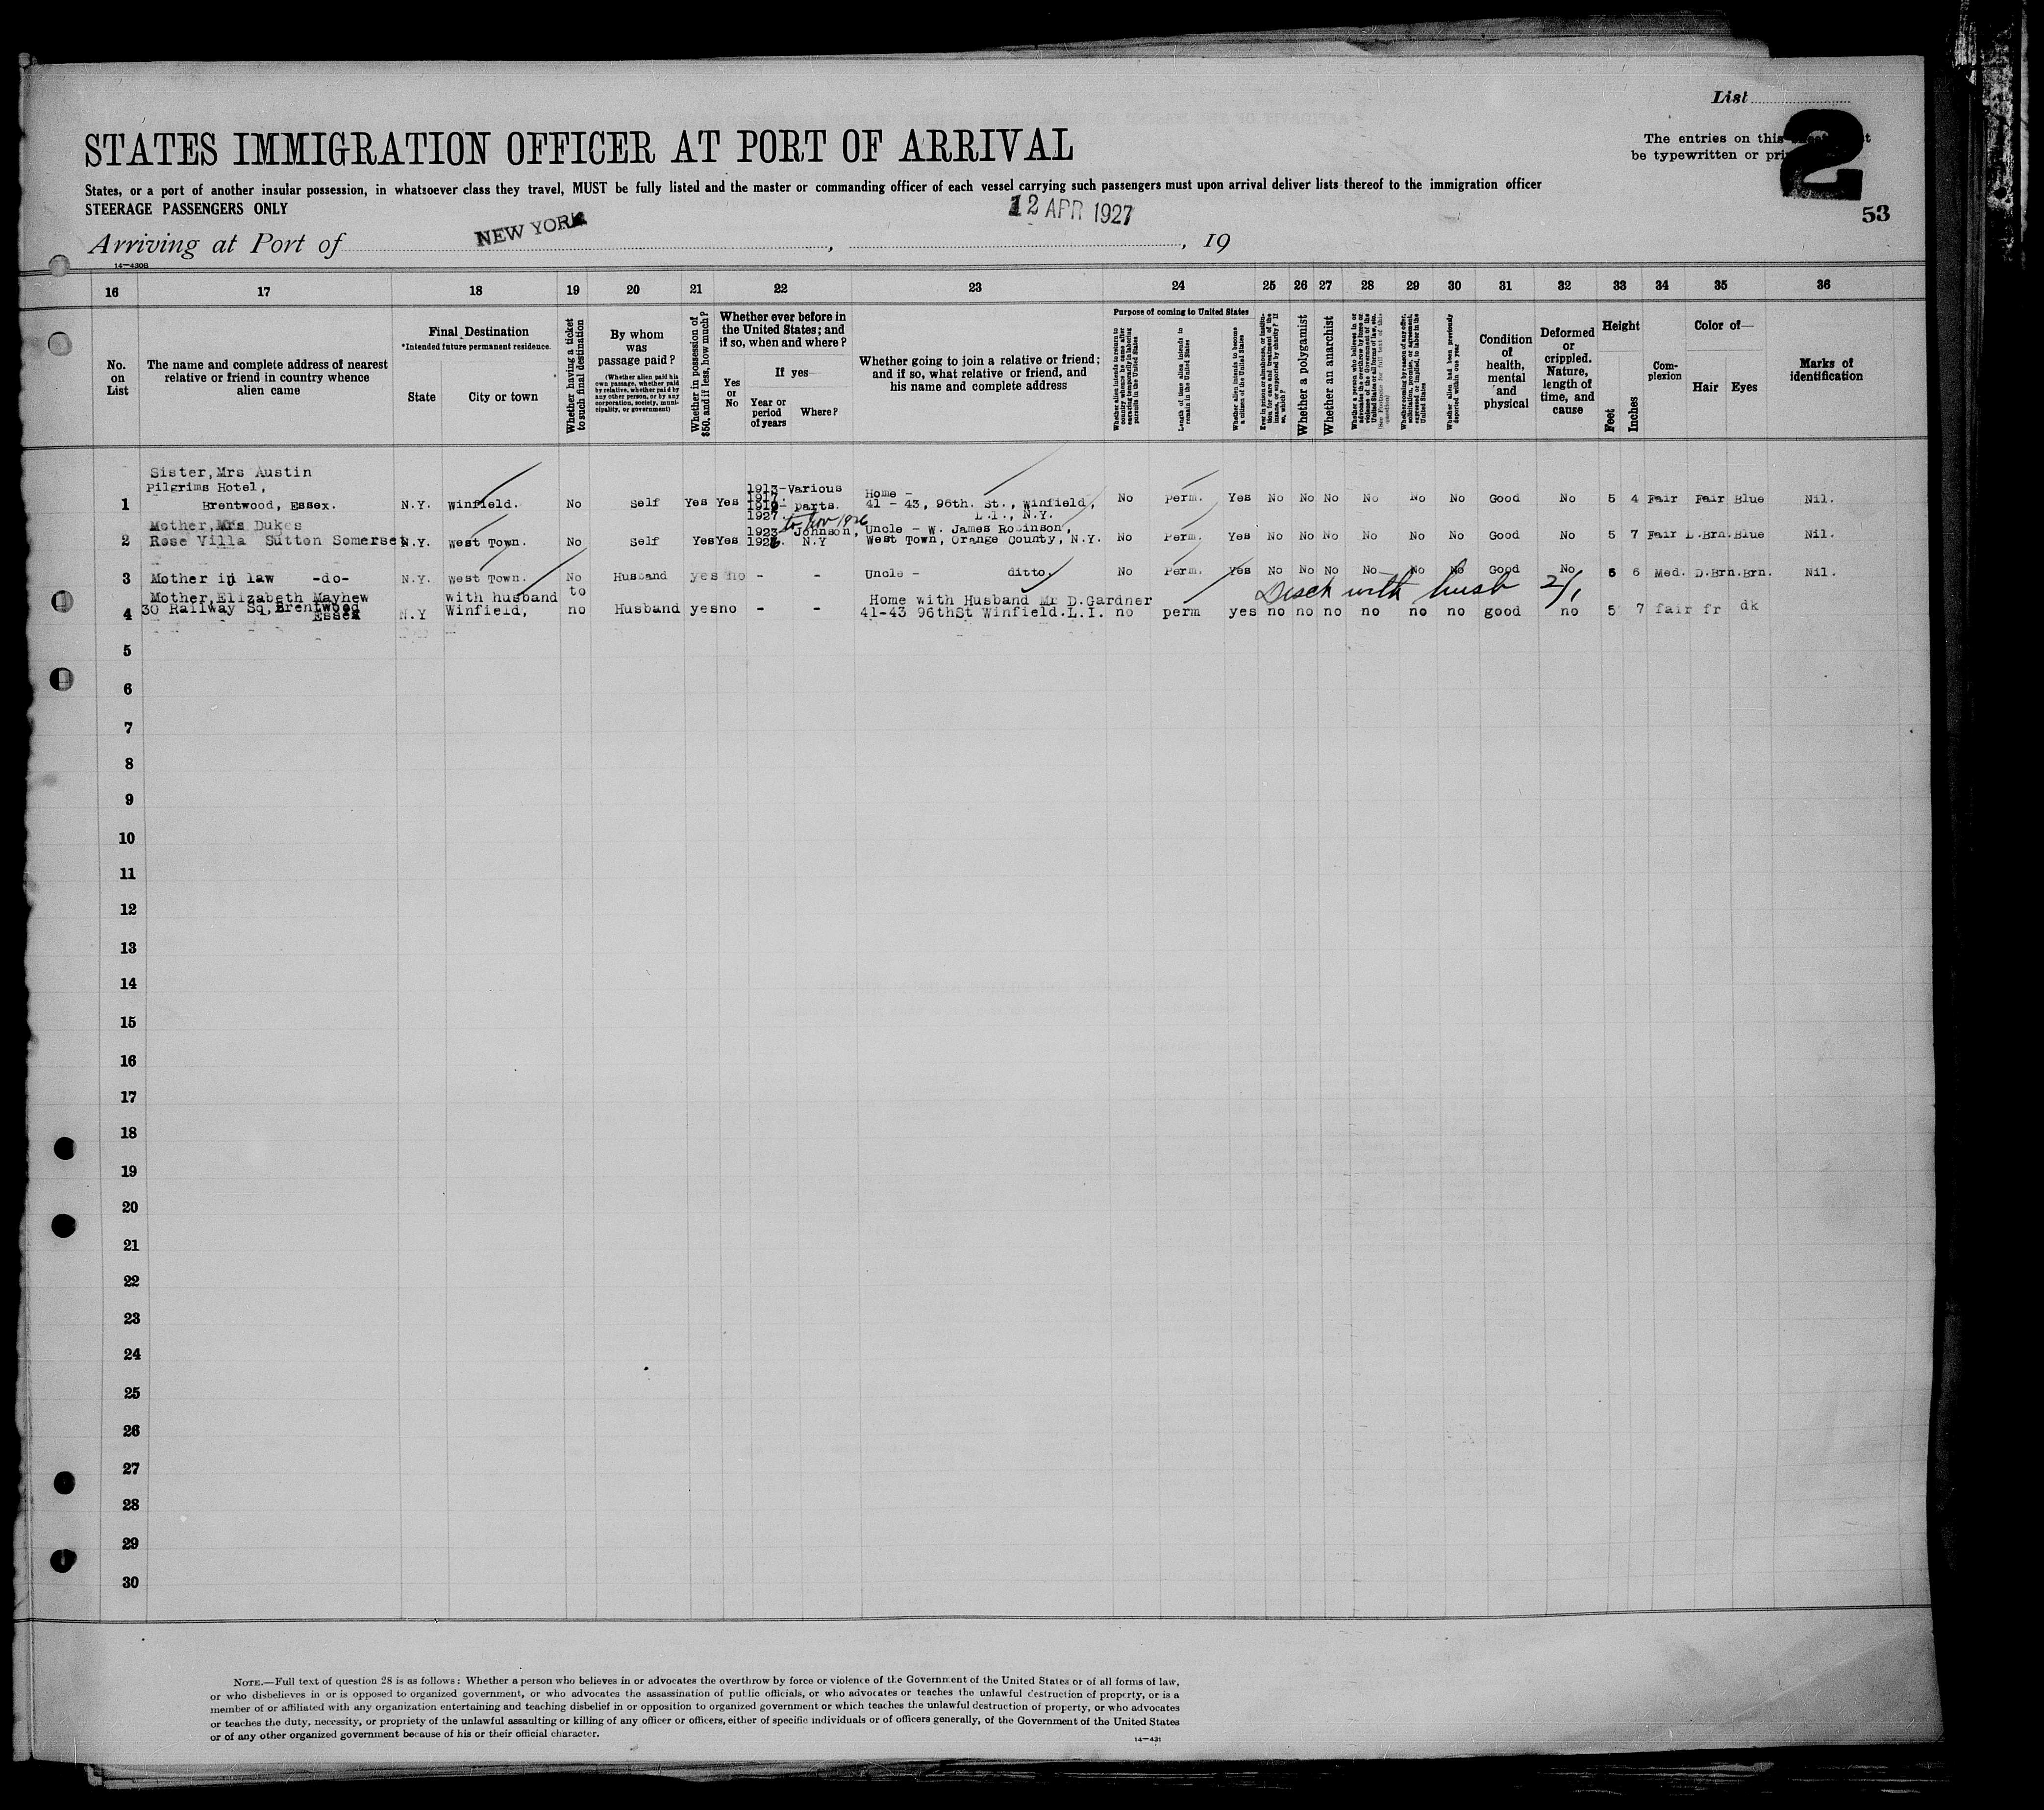 List
The entries on this
be typewritten or
2
53
STATES IMMIGRATION OFFICER AT PORT OF ARRIVAL
States, or a port of another insular possession, in whatsoever class they travel, MUST be fully listed and the master or commanding officer of each vessel carrying such passengers must upon arrival deliver lists thereof to the immigration officer
STEERAGE PASSENGERS ONLY
Arriving at Port of NEW YORK, 12 APR 1927, 19
14—430B
16 17 18 19 20 21 22 23 24 25 26 27 28 29 30 31 32 33 34 35 36
No. on List
The name and complete address of nearest relative or friend in country whence alien came
Final Destination
*Intended future permanent residence.
State
City or town
Whether having a ticket to such final destination
By whom was passage paid?
(Whether alien paid his own passage, whether paid by relative, whether paid by any other person, or by any corporation, society, municipality, or government)
Whether in possession of $50, and if less, how much?
Whether ever before in the United States; and if so, when and where?
Yes or No
If yes—
Year or period of years
Where?
Whether going to join a relative or friend; and if so, what relative or friend, and his name and complete address
Purpose of coming to United States
Whether alien intends to return to country whence he came after engaging temporarily in laboring pursuits in the United States
Length of time alien intends to remain in the United States
Whether alien intends to become a citizen of the United States
Ever in prison or almshouse, or institution for care and treatment of the insane, or supported by charity? If so, which?
Whether a polygamist
Whether an anarchist
Whether a person who believes in or advocates the overthrow by force or violence of the Government of the United States or all forms of law, etc. (See Footnote for full text of this question)
Whether coming by reason of any offer, solicitation, promise, or agreement, expressed or implied, to labor in the United States
Whether alien had been previously deported within one year
Condition of health, mental and physical
Deformed or crippled. Nature, length of time, and cause
Height
Feet
Inches
Complexion
Color of—
Hair
Eyes
Marks of identification
Sister, Mrs Austin
Pilgrims Hotel,
1 Brentwood, Essex. N.Y. Winfield. No Self Yes Yes 1913-1917. Various parts. 1927. Home - 41 - 43, 96th. St., Winfield, L.I., N.Y. No Perm. Yes No No No No No No Good No 5 4 Fair Fair Blue Nil.
Mother, Mrs Dukes
to Nov 1926
2 Rose Villa Sutton Somerset N.Y. West Town. No Self Yes Yes 1923 Johnson, N.Y Uncle - W. James Robinson, West Town, Orange County, N.Y. No Perm. Yes No No No No No No Good No 5 7 Fair L.Brn. Blue Nil.
3 Mother in law -do- N.Y. West Town. No Husband yes no - - Uncle - ditto. No Perm. Yes No No No No No No Good No 5 6 Med. D.Brn. Brn. Nil.
with husb
Mother, Elizabeth Mayhew with husband to Home with Husband Mr D.Gardner
4 30 Railway Sq, Brentwood Essex N.Y Winfield, no Husband yes no - - 41-43 96thSt Winfield.L.I. no perm yes no no no no no no good no 5 7 fair fr dk
5
6
7
8
9
10
11
12
13
14
15
16
17
18
19
20
21
22
23
24
25
26
27
28
29
30
NOTE.—Full text of question 28 is as follows: Whether a person who believes in or advocates the overthrow by force or violence of the Government of the United States or of all forms of law,
or who disbelieves in or is opposed to organized government, or who advocates the assassination of public officials, or who advocates or teaches the unlawful destruction of property, or is a
member of or affiliated with any organization entertaining and teaching disbelief in or opposition to organized government or which teaches the unlawful destruction of property, or who advocates
or teaches the duty, necessity, or propriety of the unlawful assaulting or killing of any officer or officers, either of specific individuals or of officers generally, of the Government of the United States
or of any other organized government because of his or their official character.
14—431